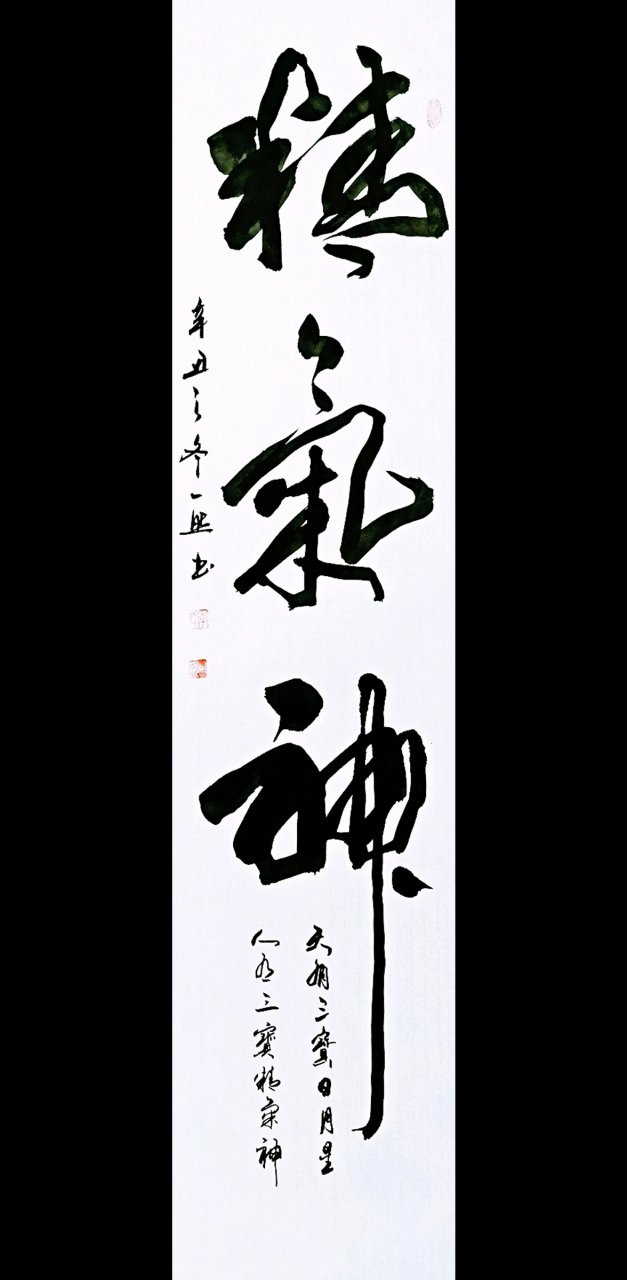 精氣神
天有三寶日月星
人有三寶精氣神
辛丑之冬一熙书